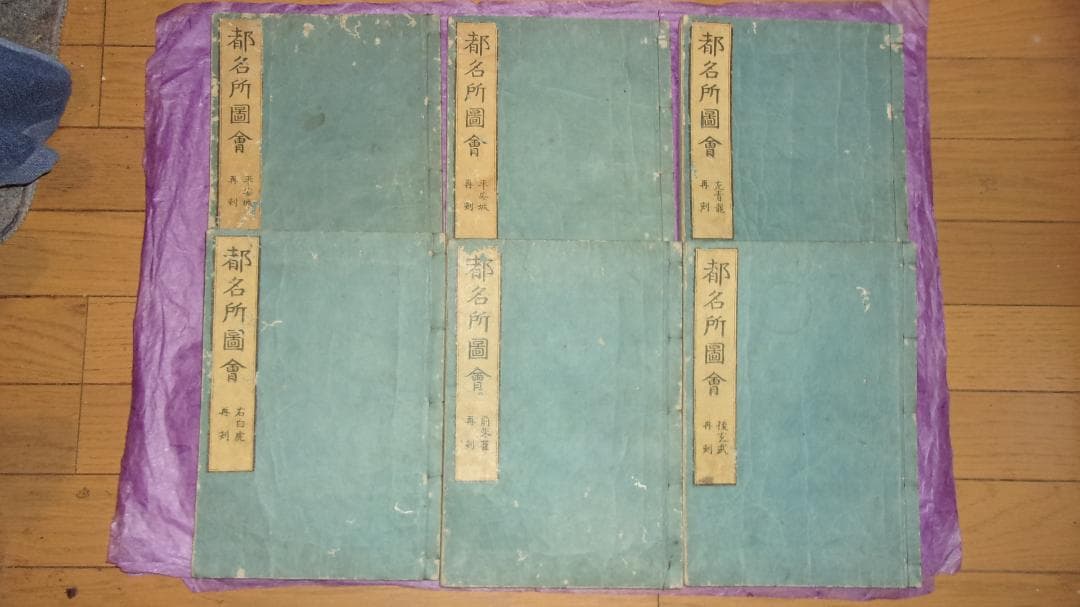 都名所圖會
平安城
再刻
都名所圖會
平安城
再刻
都名所圖會
左青龍
再刻
都名所圖會
右白虎
再刻
都名所圖會
前朱雀
再刻
都名所圖會
後玄武
再刻